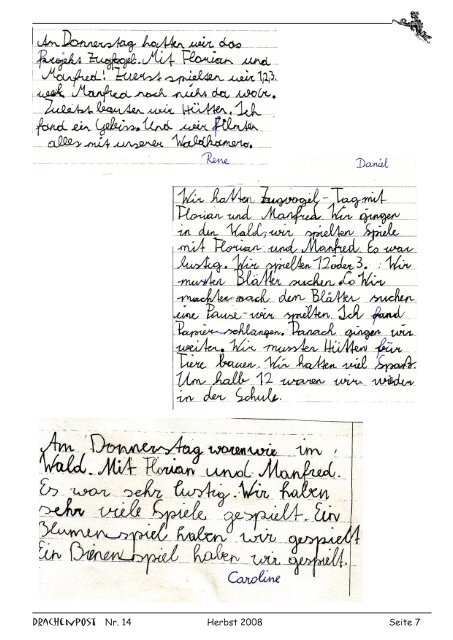 Am Donnerstag hatten wir das
Projekt Zugfogel. Mit Florian und
Manfred! Zuerst spielten wir 1,2,3.
weil Manfred noch nicht da war.
Zuletzt bauten wir Hütten. Ich
fand ein Gebiss. Und wir filmten
alles mit unserer Waldkamera.
Rene
Daniel
Wir hatten Zugvogel-Tag mit
Florian und Manfred. Wir gingen
in den Wald, wir spielten Spiele
mit Florian und Manfred. Es war
lustig. Wir spielten 12 oder 3. Wir
mussten Blätter suchen. Wir
machten nach den Blätter suchen
eine Pause wir spielten. Ich fand
Papierschlangen. Danach gingen wir
weiter. Wir mussten Hütten für
Tiere bauen. Wir hatten viel Spaß.
Um halb 12 waren wir wieder
in der Schule.
Am Donnerstag waren wir im
Wald. Mit Florian und Manfred.
Es war sehr lustig. Wir haben
sehr viele Spiele gespielt. Ein
Blumenspiel haben wir gespielt
Ein Bienenspiel haben wir gespielt.
Caroline
DRACHENPOST Nr. 14 Herbst 2008 Seite 7